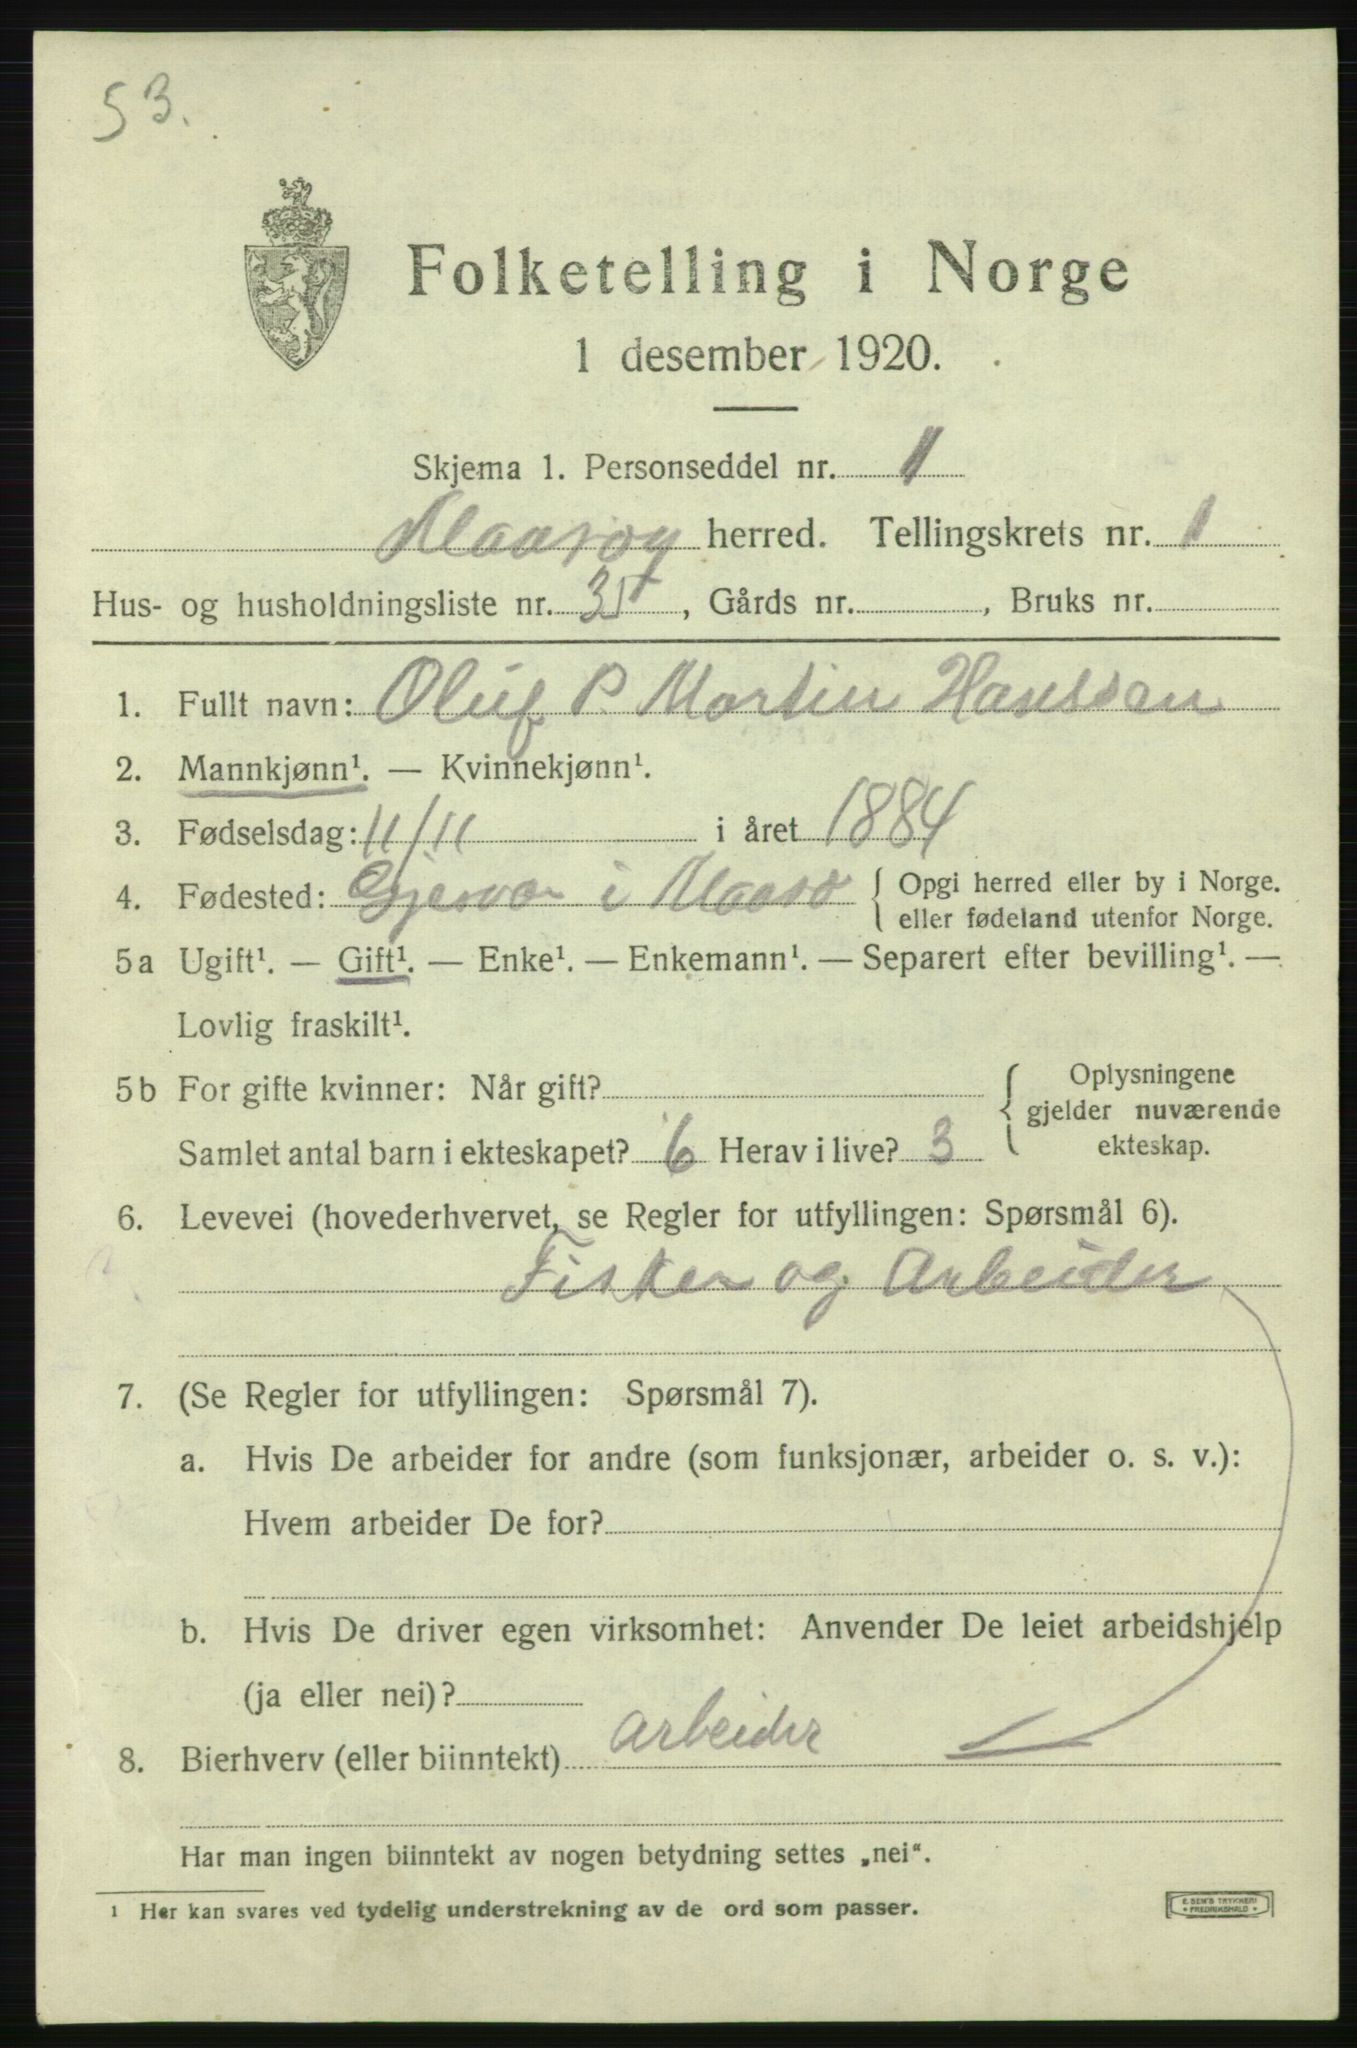 53.
Folketelling i Norge
1 desember 1920.
Skjema 1. Personseddel nr. 1
Maasøy herred. Tellingskrets nr. 1
Hus- og husholdningsliste nr. 35, Gårds nr. , Bruks nr.
1. Fullt navn: Oluf P. Martin Hanssen
2. Mannkjønn¹. — Kvinnekjønn¹.
3. Fødselsdag: 11/11 i året 1884
4. Fødested: Gjesvær i Maasø { Opgi herred eller by i Norge.
eller fødeland utenfor Norge.
5a Ugift¹. — Gift¹. — Enke¹. — Enkemann¹. — Separert efter bevilling¹. —
Lovlig fraskilt¹.
5b For gifte kvinner: Når gift?
Samlet antal barn i ekteskapet? 6 Herav i live? 3
{ Oplysningene
gjelder nuværende
ekteskap.
6. Levevei (hovederhvervet, se Regler for utfyllingen: Spørsmål 6).
Fisker og Arbeider
7. (Se Regler for utfyllingen: Spørsmål 7).
a. Hvis De arbeider for andre (som funksjonær, arbeider o. s. v.):
Hvem arbeider De for?
b. Hvis De driver egen virksomhet: Anvender De leiet arbeidshjelp
(ja eller nei)?
8. Bierhverv (eller biinntekt) arbeider
Har man ingen biinntekt av nogen betydning settes „nei“.
1 Her kan svares ved tydelig understrekning av de ord som passer.
E. SEM'S TRYKKERI
• FREDRIKSHALD •